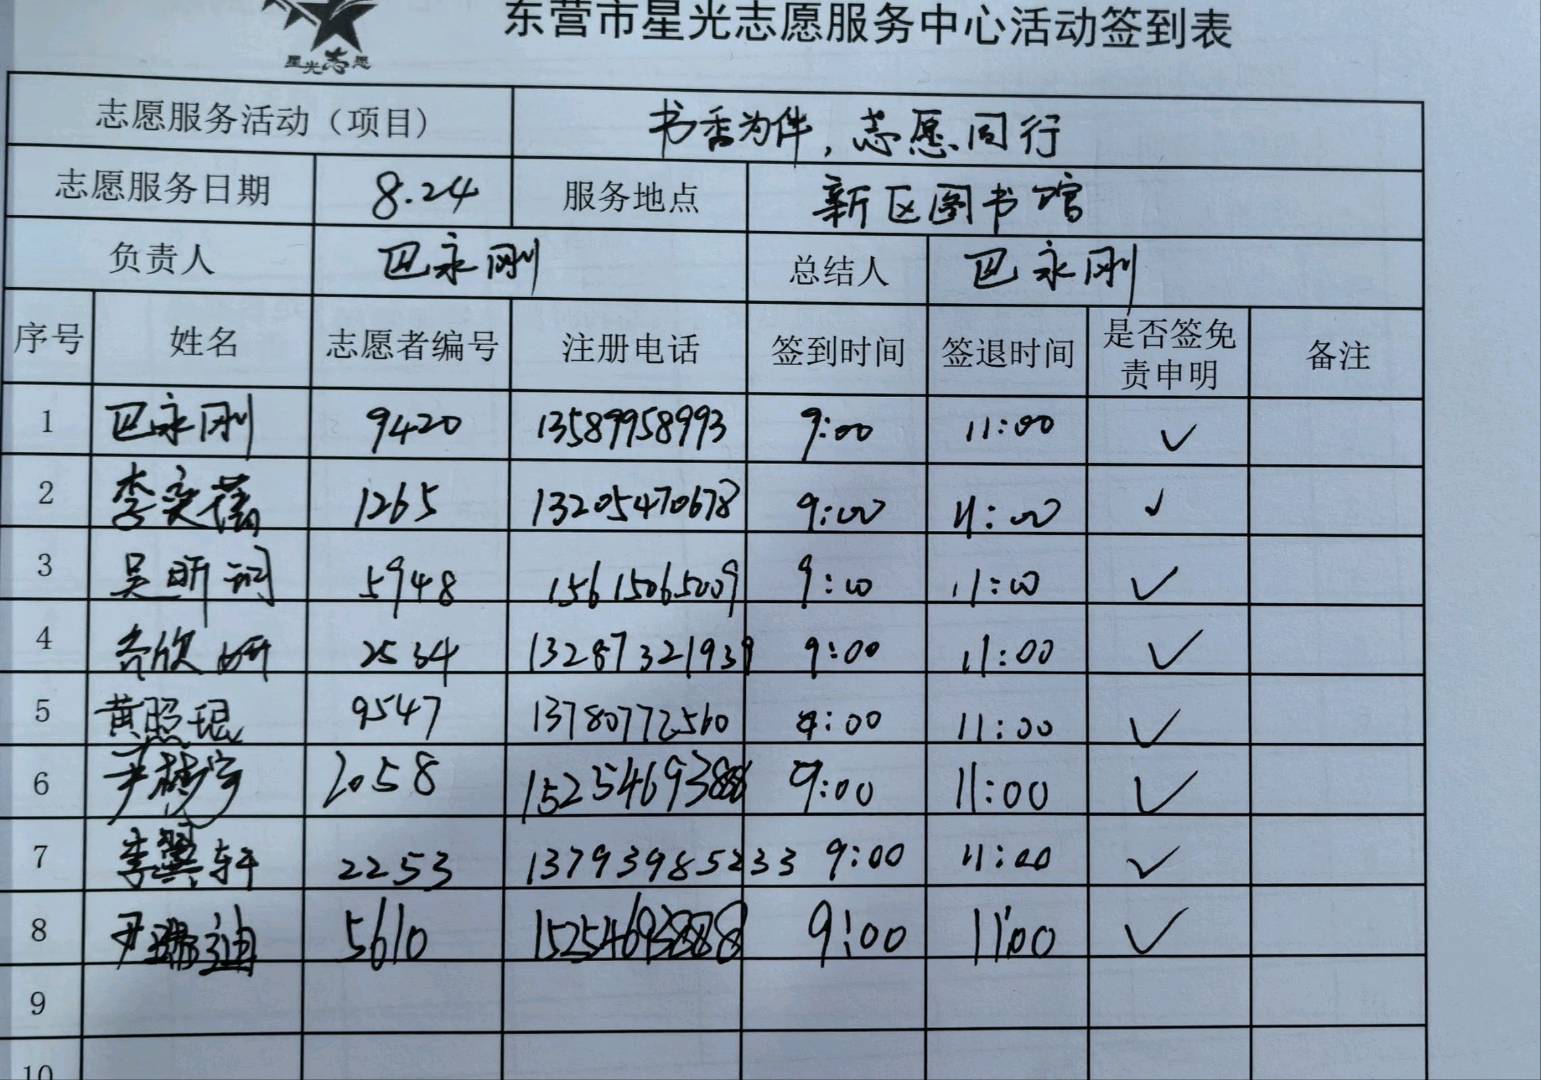 星光志愿
东营市星光志愿服务中心活动签到表
志愿服务活动（项目） 书香为伴，志愿同行
志愿服务日期 8.24 服务地点 新区图书馆
负责人 巴永刚 总结人 巴永刚
序号 姓名 志愿者编号 注册电话 签到时间 签退时间 是否签免责申明 备注
1 巴永刚 9420 13589958993 9:00 11:00 ✓
2 李奕 1265 13205470678 9:00 11:00 ✓
3 吴昕词 5948 15615065009 9:00 11:00 ✓
4 欣妍 2534 13287321939 9:00 11:00 ✓
5 黄照琨 9547 13780772560 9:00 11:00 ✓
6 尹梓宇 2058 15254693888 9:00 11:00 ✓
7 李翼轩 2253 13793985233 9:00 11:00 ✓
8 尹迪 5610 15254693888 9:00 11:00 ✓
9
10